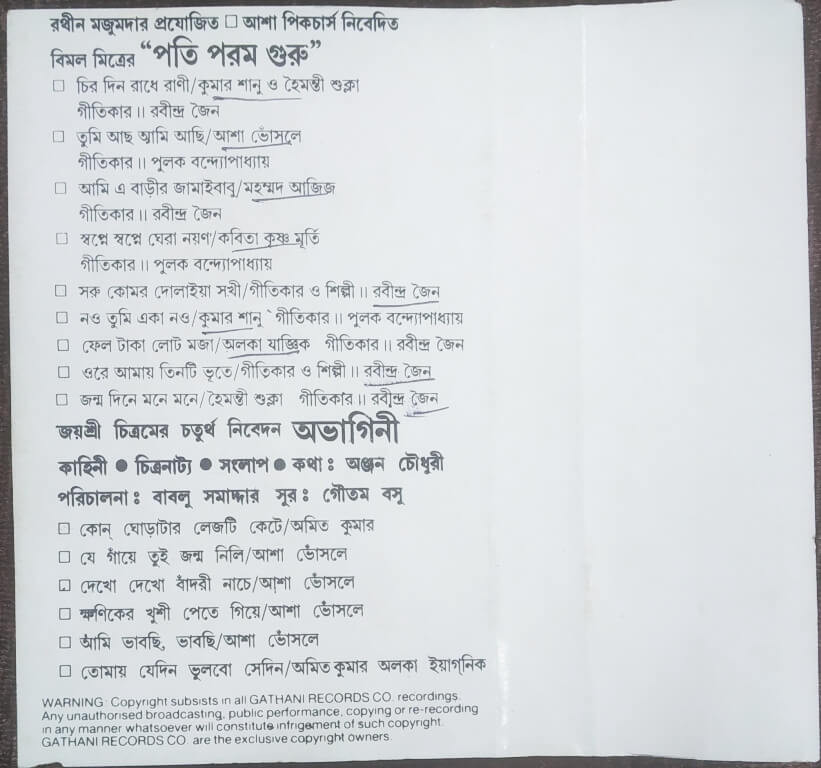 রথীন মজুমদার প্রযোজিত □ আশা পিকচার্স নিবেদিত
বিমল মিত্রের “পতি পরম গুরু”
□ চির দিন রাধে রাণী/কুমার শানু ও হৈমন্তী শুক্লা
গীতিকার।। রবীন্দ্র জৈন
□ তুমি আছ আমি আছি/আশা ভোঁসলে
গীতিকার।। পুলক বন্দ্যোপাধ্যায়
□ আমি এ বাড়ীর জামাইবাবু/মহম্মদ আজিজ
গীতিকার।। রবীন্দ্র জৈন
□ স্বপ্নে স্বপ্নে ঘেরা নয়ণ/কবিতা কৃষ্ণ মূর্তি
গীতিকার।। পুলক বন্দ্যোপাধ্যায়
□ সরু কোমর দোলাইয়া সখী/গীতিকার ও শিল্পী।। রবীন্দ্র জৈন
□ নও তুমি একা নও/কুমার শানু গীতিকার।। পুলক বন্দ্যোপাধ্যায়
□ ফেল টাকা লোট মজা/অলকা যাজ্ঞিক গীতিকার।। রবীন্দ্র জৈন
□ ওরে আমায় তিনটি ভূতে/গীতিকার ও শিল্পী।। রবীন্দ্র জৈন
□ জন্ম দিনে মনে মনে/হৈমন্তী শুক্লা গীতিকার।। রবীন্দ্র জৈন
জয়শ্রী চিত্রমের চতুর্থ নিবেদন অভাগিনী
কাহিনী ● চিত্রনাট্য ● সংলাপ ● কথা : অঞ্জন চৌধুরী
পরিচালনা : বাবলু সমাদ্দার সুর : গৌতম বসু
□ কোন্ ঘোড়াটার লেজটি কেটে/অমিত কুমার
□ যে গাঁয়ে তুই জন্ম নিলি/আশা ভোঁসলে
□ দেখো দেখো বাঁদরী নাচে/আশা ভোঁসলে
□ ক্ষণিকের খুশী পেতে গিয়ে/আশা ভোঁসলে
□ আমি ভাবছি, ভাবছি/আশা ভোঁসলে
□ তোমায় যেদিন ভুলবো সেদিন/অমিত কুমার অলকা ইয়াগ্‌নিক
WARNING: Copyright subsists in all GATHANI RECORDS CO. recordings.
Any unauthorised broadcasting, public performance, copying or re-recording
in any manner whatsoever will constitute infrigement of such copyright.
GATHANI RECORDS CO. are the exclusive copyright owners.